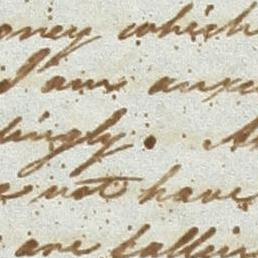 oney which
I am anxi
dingly. A
e not have
are fallin